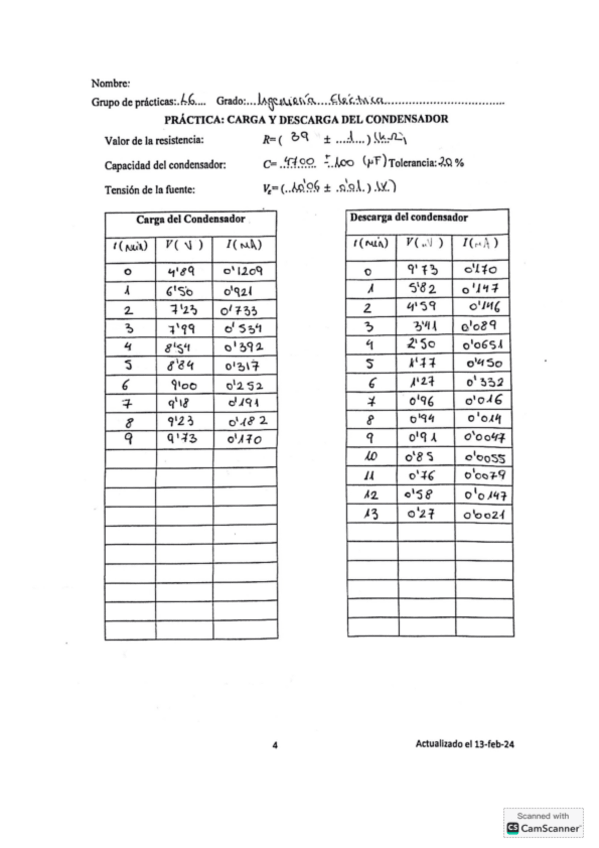 Nombre:
Grupo de prácticas: A6 Grado: Ingeniería Eléctrica
PRÁCTICA: CARGA Y DESCARGA DEL CONDENSADOR
Valor de la resistencia: R= ( 39 ± 1 ) (kΩ)
Capacidad del condensador: C= 4700 ± 100 (μF) Tolerancia: 20 %
Tensión de la fuente: Vε= ( 10'06 ± 0'01 ) (V)
Carga del Condensador
t (min) V ( V ) I ( mA )
0 4'89 0'1209
1 6'50 0'921
2 7'23 0'733
3 7'99 0'534
4 8'54 0'392
5 8'84 0'317
6 9'00 0'252
7 9'18 0'191
8 9'23 0'182
9 9'73 0'170
Descarga del condensador
t (min) V ( V ) I ( mA )
0 9'73 0'170
1 5'82 0'147
2 4'59 0'146
3 3'41 0'089
4 2'50 0'0651
5 1'77 0'450
6 1'27 0'332
7 0'96 0'016
8 0'94 0'014
9 0'91 0'0047
10 0'85 0'0055
11 0'76 0'0079
12 0'58 0'0147
13 0'27 0'0021
4
Actualizado el 13-feb-24
Scanned with
CS CamScanner